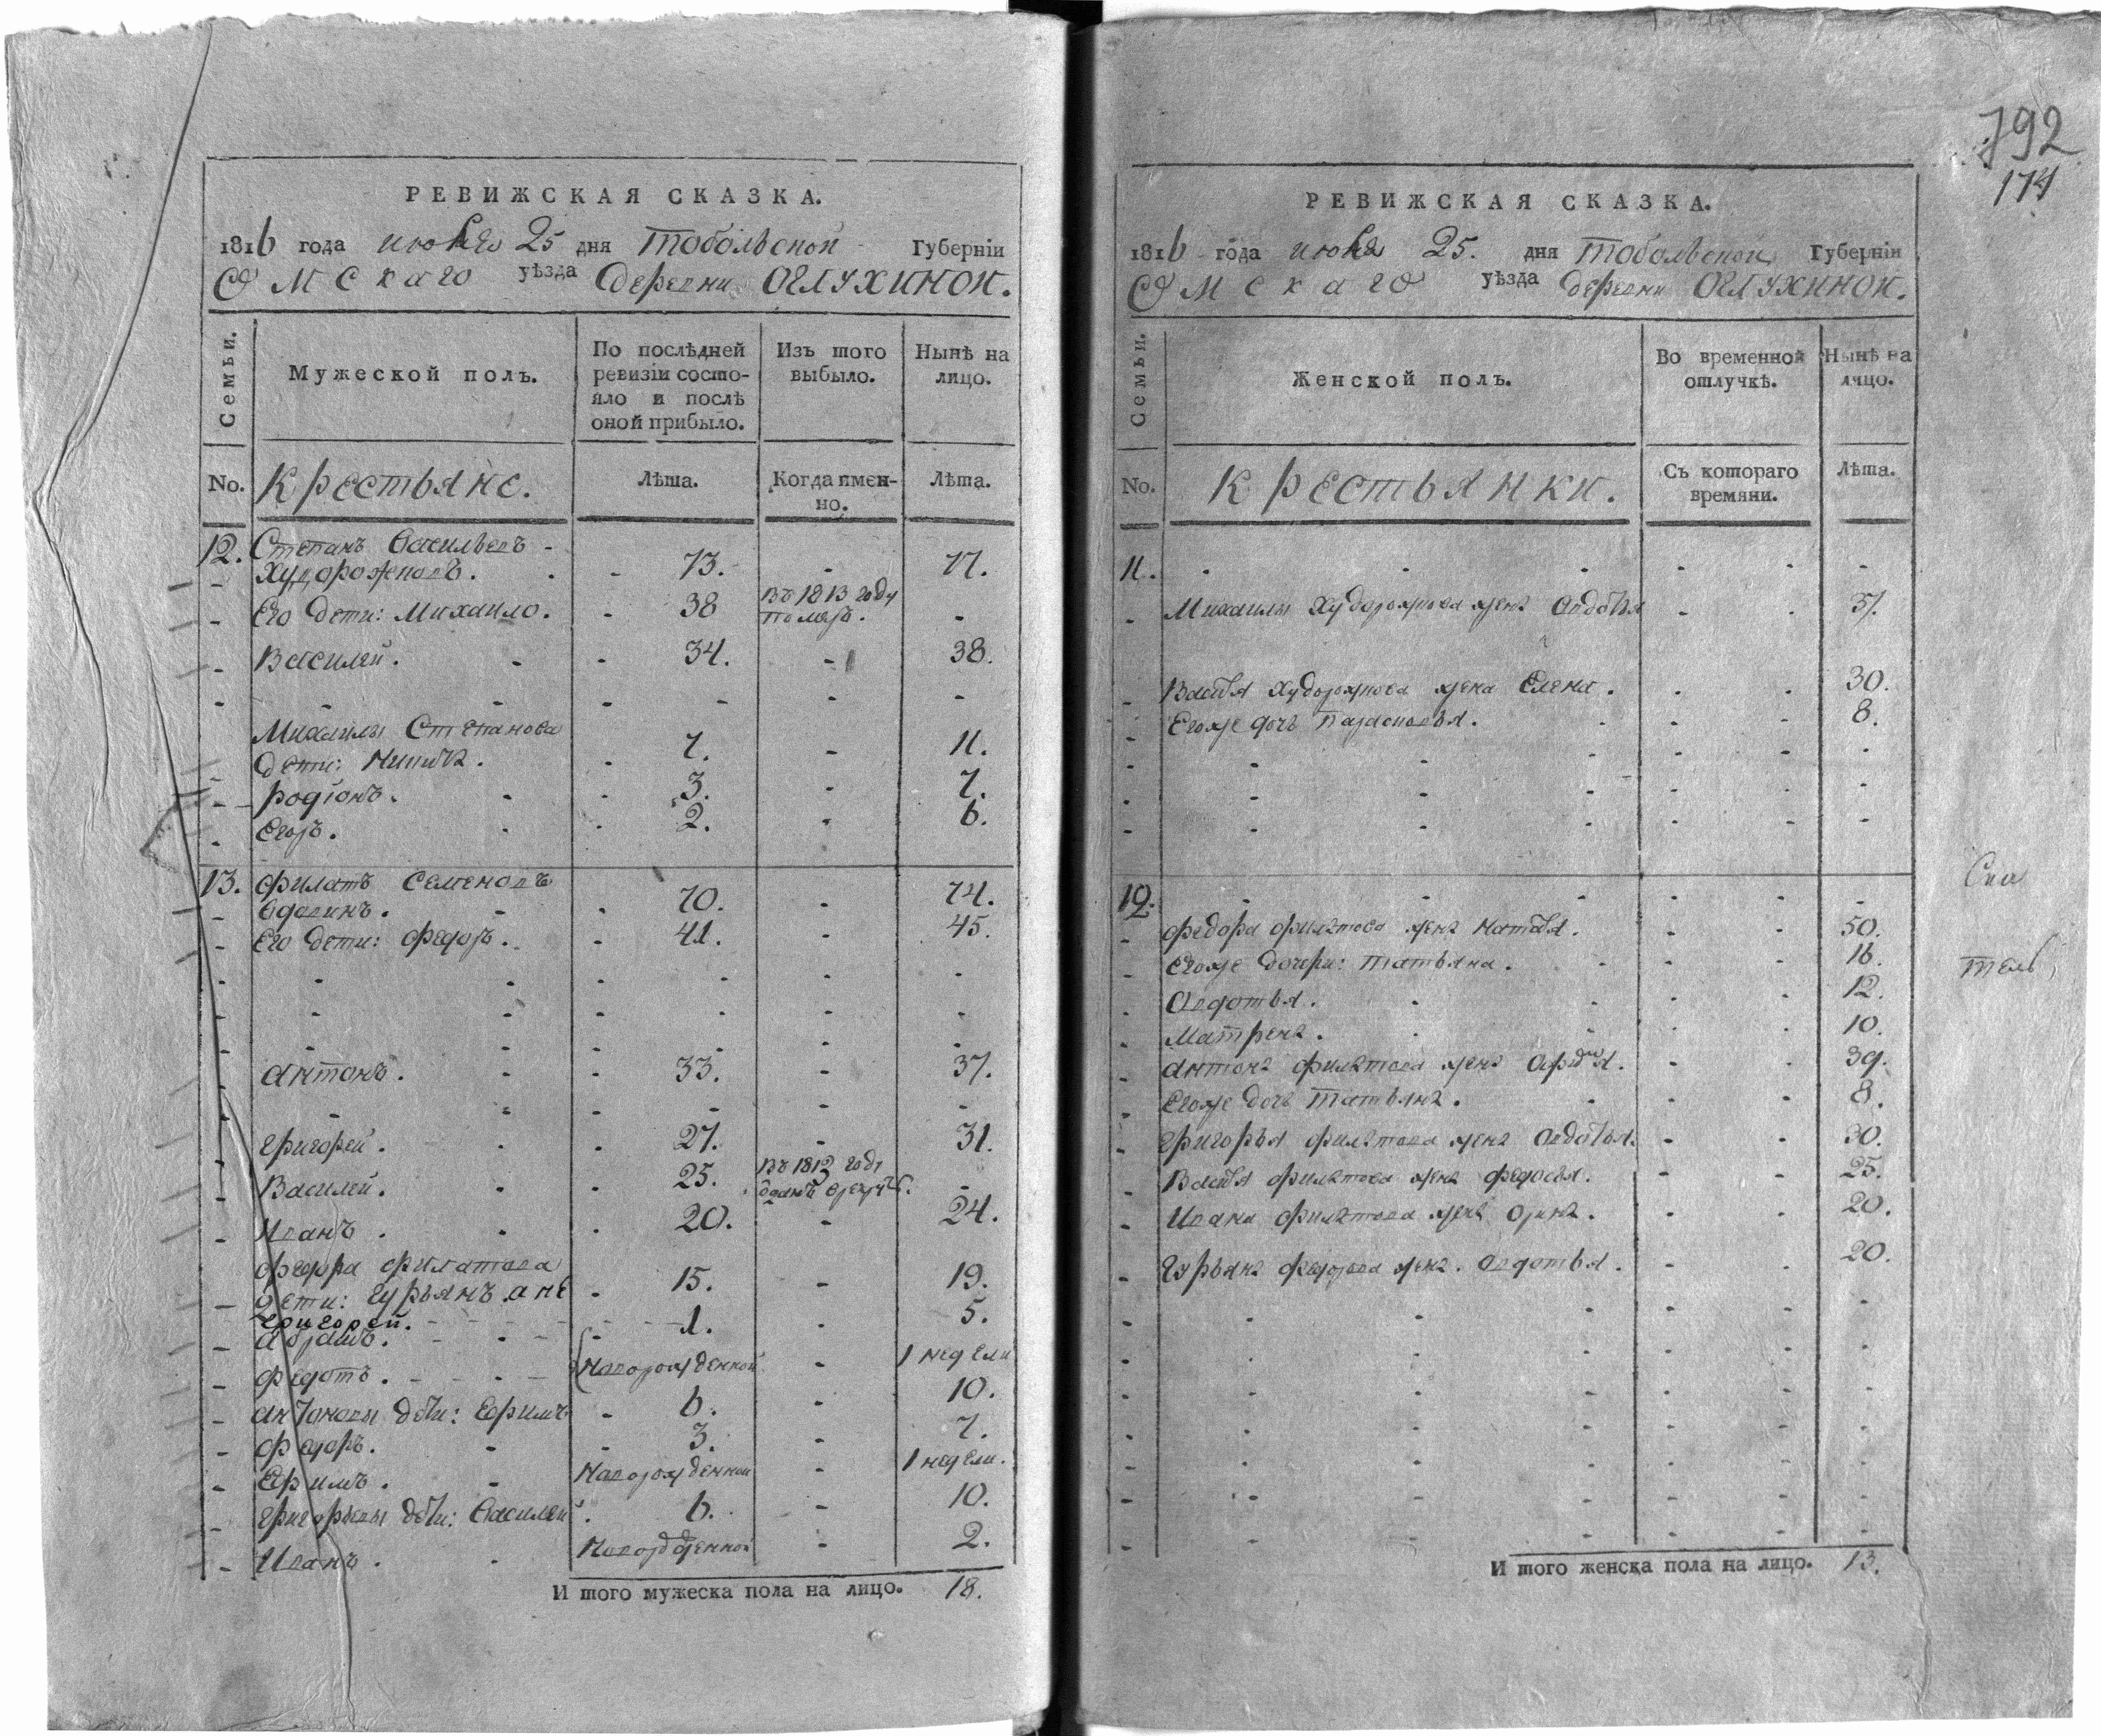 РЕВИЖСКАЯ СКАЗКА.
1816 года июня 25 дня Тобольской Губерніи
Омскаго уѣзда деревни Оглухиной.
Семьи.
Мужеской полъ.
По послѣдней ревизіи состояло и послѣ оной прибыло.
Изъ того выбыло.
Нынѣ на лицо.
No. Крестьяне. Лѣта. Когда имен-но. Лѣта.
12. Степанъ Васильевъ
Худороженовъ. 73. 77.
Его дети: Михаило. 38 Въ 1813 году померъ.
Василей. 34. 38.
Михаилы Степанова
дети: Никита. 7. 11.
Родіонъ. 3. 7.
Егоръ. 2. 6.
13. Филатъ Семеновъ
Вдовинъ. 70. 74.
Его дети: Федоръ. 41. 45.
Антонъ. 33. 37.
Григорей. 27. 31.
Василей. 25. Въ 1812 году отданъ в рекруты.
Иванъ. 20. 24.
Федора Филатова
дети: Гурьянъ, а не 15. 19.
Григорей.
Абрамъ. 1. 5.
Федотъ. Новорожденной 1 недели
Антоновы дѣти: Ефимъ 6. 10.
Федоръ. 3. 7.
Ефимъ. Новорожденной 1 недели.
Григорьевы дѣти: Василей 6. 10.
Иванъ. Новорожденной 2.
И того мужеска пола на лицо. 18.
792
174
РЕВИЖСКАЯ СКАЗКА.
1816 года июня 25. дня Тобольской Губерніи
Омскаго уѣзда деревни Оглухиной.
Семьи.
Женской полъ.
Во временной отлучкѣ.
Нынѣ на лицо.
No. Крестьянки. Съ котораго времяни. Лѣта.
11.
Михаилы Худорожкова жена Авдотья 37.
Василья Худорожкова жена Елена. 30.
Егоже дочь Парасковья. 8.
12.
Федора Филатова жена Наталья. 50.
Егоже дочери: Татьяна. 16.
Авдотья. 12.
Матрена. 10.
Антона Филатова жена 39.
Егоже дочь Татьяна. 8.
Григорья Филатова жена Авдотья. 30.
Василья Филатова жена Федосья. 25.
Ивана Филатова жена Орина. 20.
Гурьяна Федорова жена. Авдотья. 20.
И того женска пола на лицо. 13.
Ска
тель